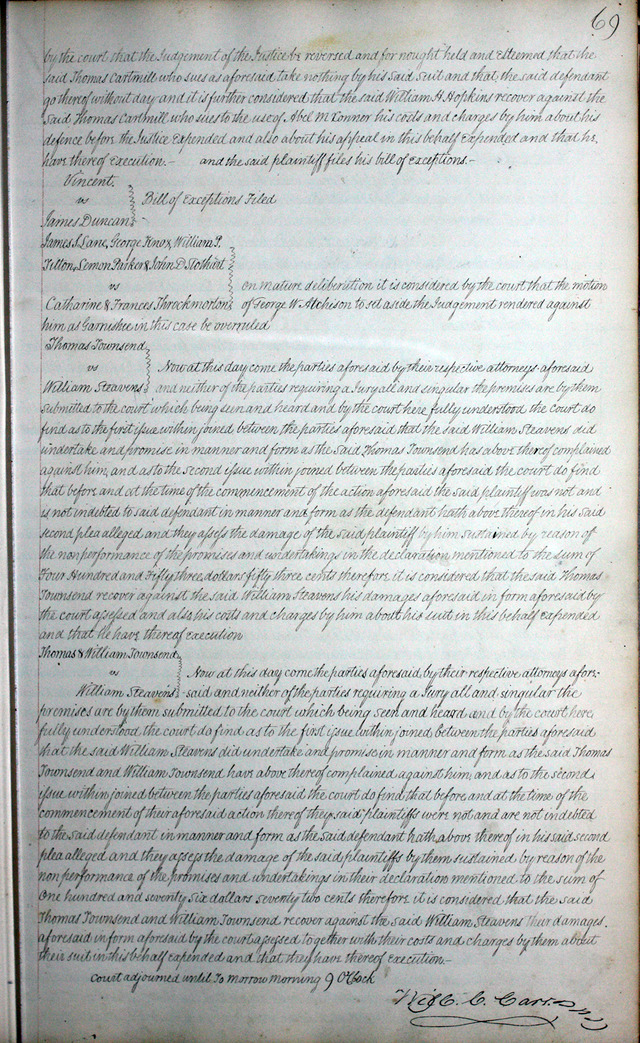 69
by the court that the Judgement of the Justice be reversed and for nought held and Esteemed that the
said Thomas Cartmill who sues as aforesaid take nothing by his said suit and that the said defendant
go thereof without day and it is further considered that the said William H Hopkins recover against the
said Thomas Cartmill who sues to the use of Abel McConnor his costs and charges by him about his
defence before the Justice Expended and also about his appeal in this behalf Expended and that he
have thereof Execution.— and the said plaintiff files his bill of Exceptions.—
Vincent
vs Bill of Exceptions Filed
James Duncan
James S. Lane, George Knox, William P.
Titton, Lemon Parker & John D. Stothart
vs on mature deliberation it is considered by the court that the motion
Catharine & Frances Throckmorton of George W. Atchison to set aside the Judgement rendered against
him as Garnishee in this case be overruled
Thomas Townsend
vs Now at this day come the parties aforesaid by their respective attorneys aforesaid
William Steavens and neither of the parties requiring a Jury all and singular the premises are by them
submitted to the court which being seen and heard and by the court here fully understood the court do
find as to the first issue within joined between the parties aforesaid that the said William Steavens did
undertake and promise in manner and form as the said Thomas Townsend has above thereof complained
against him, and as to the second issue within joined between the parties aforesaid the court do find
that before and at the time of the commencement of the action aforesaid the said plaintiff was not and
is not indebted to said defendant in manner and form as the defendant hath above thereof in his said
second plea alleged and they assess the damage of the said plaintiff by him sustained by reason of
the nonperformance of the promises and undertakings in the declaration mentioned to the sum of
Four Hundred and Fifty three dollars fifty three cents therefore it is considered that the said Thomas
Townsend recover against the said William Steavens his damages aforesaid in form aforesaid by
the court assessed and also his costs and charges by him about his suit in this behalf expended
and that he have thereof Execution
Thomas & William Townsend
vs Now at this day come the parties aforesaid, by their respective attorneys afore:
William Steavens said and neither of the parties requiring a Jury all and singular the
premises are by them submitted to the court which being seen and heard and by the court here,
fully understood the court do find as to the first issue within joined between the parties aforesaid
that the said William Steavens did undertake and promise in manner and form as the said Thomas
Townsend and William Townsend have above thereof complained against him, and as to the second
issue within joined between the parties aforesaid the court do find that before and at the time of the
commencement of their aforesaid action thereof they said plaintiffs were not and are not indebted
to the said defendant in manner and form as the said defendant hath above thereof in his said second
plea alleged and they assess the damage of the said plaintiffs by them sustained by reason of the
non performance of the promises and undertakings in their declaration mentioned to the sum of
One hundred and seventy six dollars seventy two cents therefore it is considered that the said
Thomas Townsend and William Townsend recover against the said William Steavens their damages
aforesaid in form aforesaid by the court assessed together with their costs and charges by them about
their suit in this behalf expended and that they have thereof execution.—
Court adjourned until To morrow morning 9 O'Clock